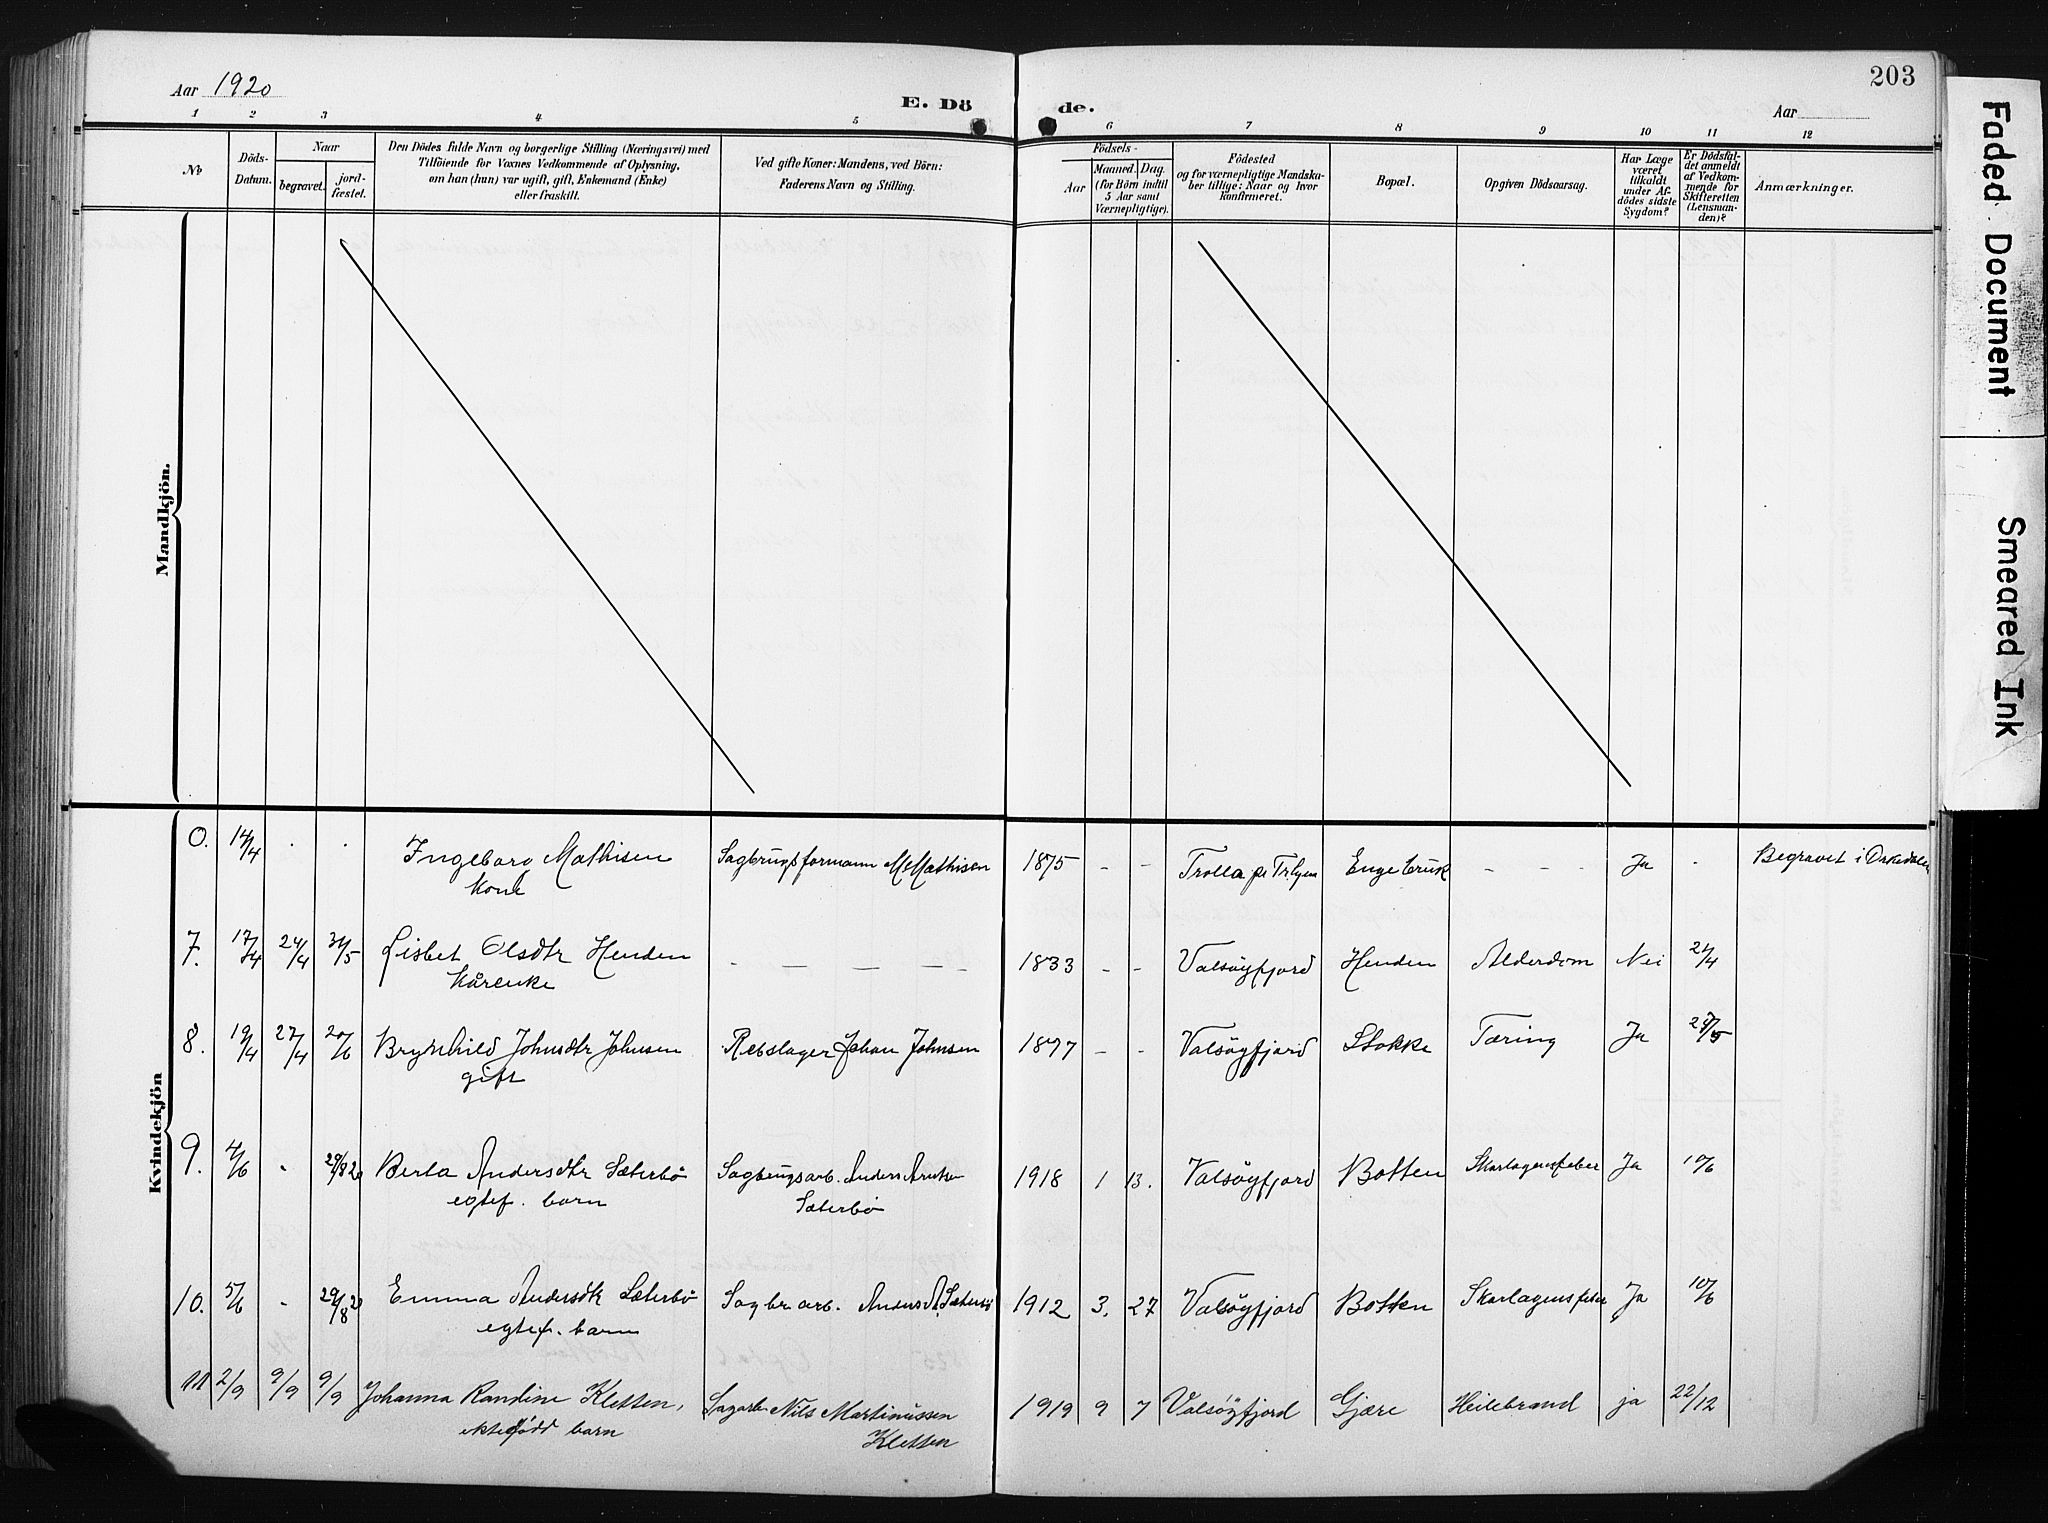 Aar 1920
E. Dö
de.
Aar
203
1 2 3 4 5 6 7 8 9 10 11 12
No
Döds-
Datum.
Naar
begravet.
jord-
fæstet.
Den Dödes fulde Navn og borgerlige Stilling (Næringsvei) med
Tilföiende for Voxnes Vedkommende af Oplysning,
om han (hun) var ugift, gift, Enkemand (Enke)
eller fraskilt.
Ved gifte Koner: Mandens, ved Börn:
Faderens Navn og Stilling.
Födsels-
Aar
Maaned. Dag.
(for Börn indtil
5 Aar samt
Værnepligtige).
Födested
og for værnepligtige Mandska-
ber tillige: Naar og hvor
konfirmeret.
Bopæl.
Opgiven Dödsaarsag.
Har Læge
været
tilkaldt
under Af-
dödes sidste
Sygdom?
Er Dödsfal-
det anmeldt
af Vedkom-
mende for
Skifteretten
(Lensman-
den)?
Anmærkninger.
Mandkjön.
Kvindekjön
0. 14/4 . . Ingeborg Mathisen Sagbrugsformann M. Mathisen 1875 - - Trolla pr Tr.hjem Engebruk - - - Ja . Begravet i Orkedalen
kone
7. 17/4 24/4 31/5 Lisbet Olsdtr Henden - - - - - 1833 - - Valsøyfjord Henden Alderdom Nei 21/4
kårenke
8. 19/4 27/4 20/6 Brynhild Johnsdtr Johnsen Rebslager Johan Johnsen 1897 - - Valsøyfjord Stokke Tæring Ja 27/5
gift
9. 4/6 . 29/8 20 Berta Andersdtr Sæterbø Sagbrugsarb. Anders Arntsen 1918 1 13. Valsøyfjord Botten Skarlagensfeber Ja 10/6
egtef. barn Sæterbø
10. 5/6 - 29/8 20 Emma Andersdtr Sæterbø Sagbr arb. Anders A. Sæterbø 1912 3. 27 Valsøyfjord Botten Skarlagensfeber Ja 10/6
egtef. barn
11 2/9 9/9 9/9 Johanna Randine Kletten, Sagarb. Nils Martinussen 1919 9 7 Valsøyfjord Gjære Heilebrand ja 22/12
ektefødd barn Kletten
Faded Document
Smeared Ink